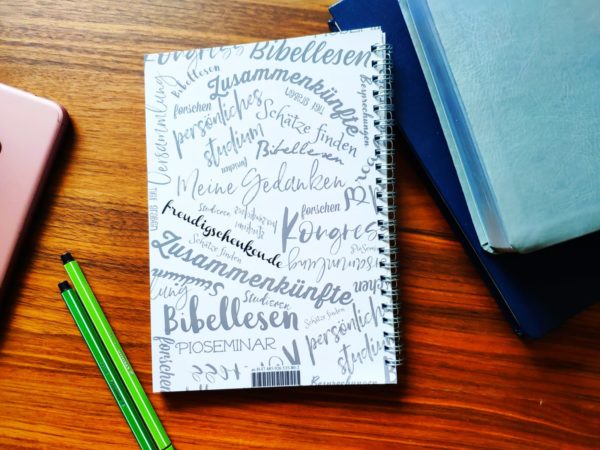 Kongress Bibellesen
Bibellesen
Zusammenkünfte
Versammlung
forschen
persönliches
studium
Schätze finden
Besprechungen
forschen
Bibellesen
Meine Gedanken
Studieren
forschen
freudigschenken.de
Kongress
Schätze finden
Versammlung
Zusammenkünfte
Studium
Studieren
Bibellesen
Schätze finden
persönliches
studium
PIOSEMINAR
forschen
Besprechungen